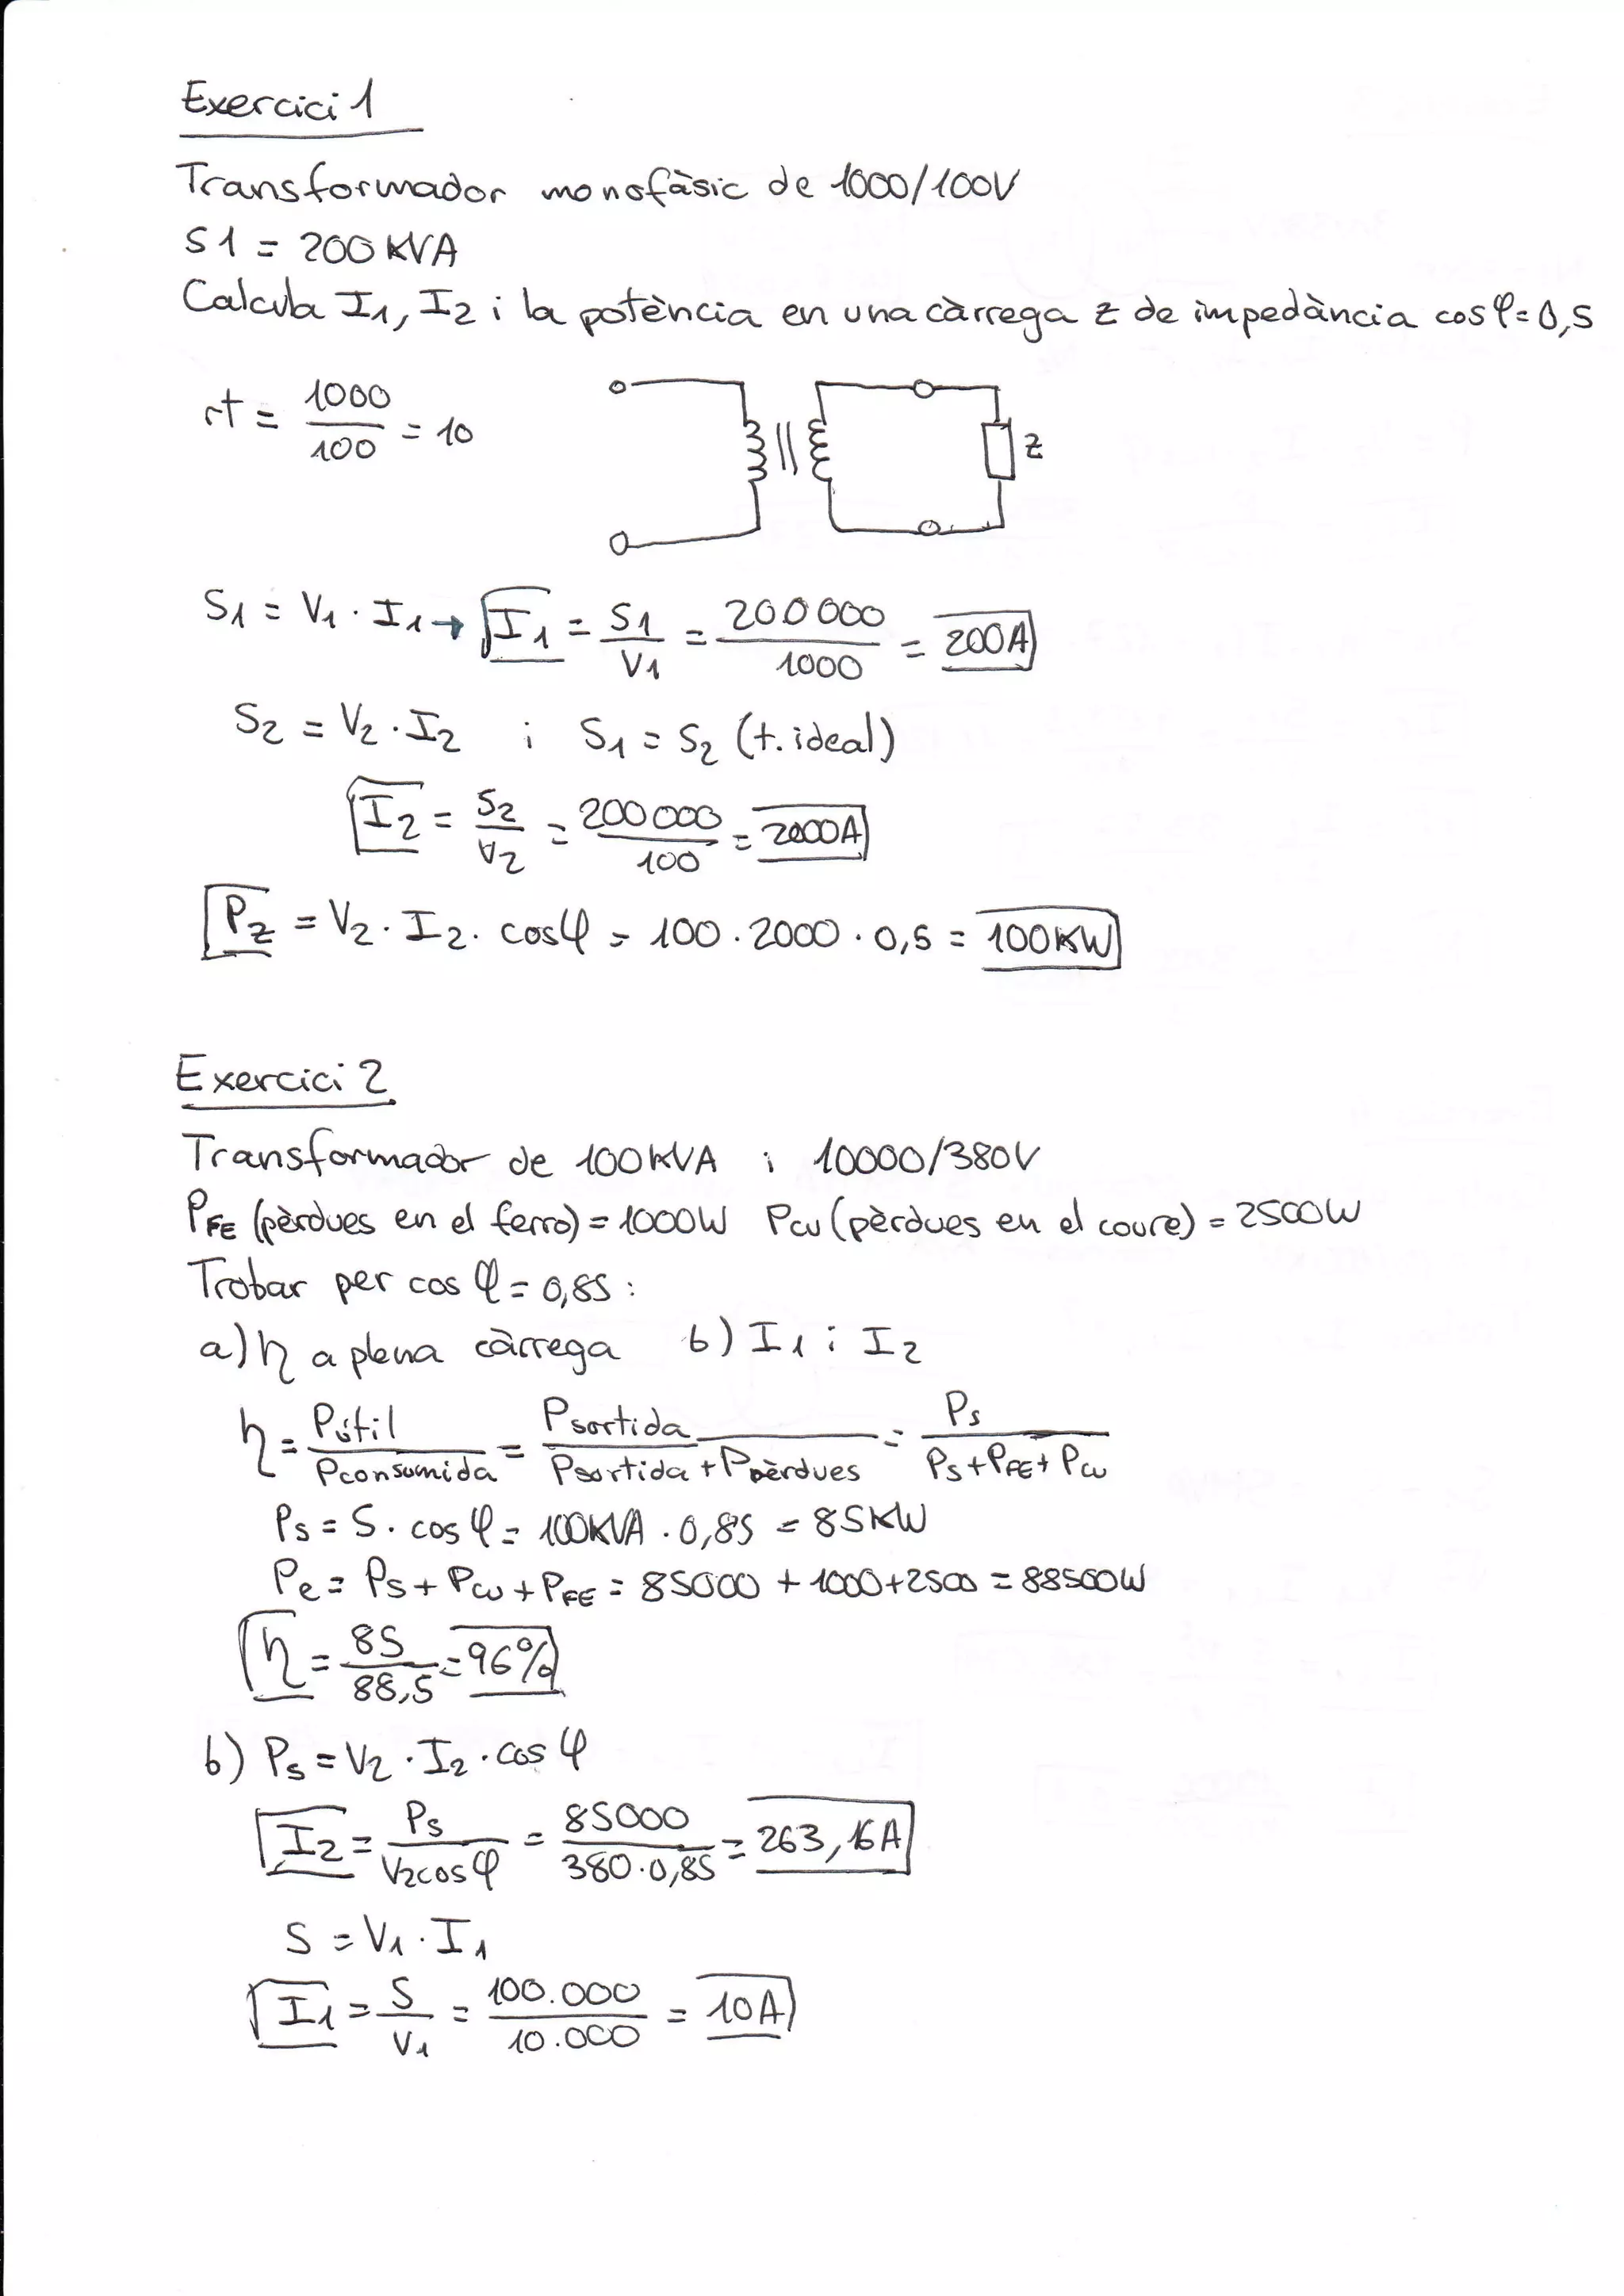 Exercici 1
Transformador monofàsic de 1000/100V
S1 = 200 KVA
Calcula I1, I2 i la potència en una càrrega z de impedància cosφ=0,5
rt = 1000/100 = 10
z
S1 = V1 · I1 → I1 = S1/V1 = 200000/1000 = 200A
S2 = V2 · I2 i S1 = S2 (t. ideal)
I2 = S2/V2 = 200000/100 = 2000A
Pz = V2 · I2 · cosφ = 100 · 2000 · 0,5 = 100KW
Exercici 2
Transformador de 100KVA i 10000/380V
PFE (pèrdues en el ferro) = 1000W Pcu (pèrdues en el coure) = 2500W
Trobar per cos φ = 0,85 :
a) η a plena càrrega b) I1 i I2
η = Pútil/Pconsumida = Psortida/Psortida + Ppèrdues = Ps/Ps+PFE+Pcu
Ps = S · cos φ = 100KVA · 0,85 = 85KW
Pe = Ps + Pcu + PFE = 85000 + 1000+2500 = 88500W
η = 85/88,5 = 96%
b) Ps = V2 · I2 · cos φ
I2 = Ps/V2cosφ = 85000/380·0,85 = 263,16A
S = V1 · I1
I1 = S/V1 = 100.000/10.000 = 10A